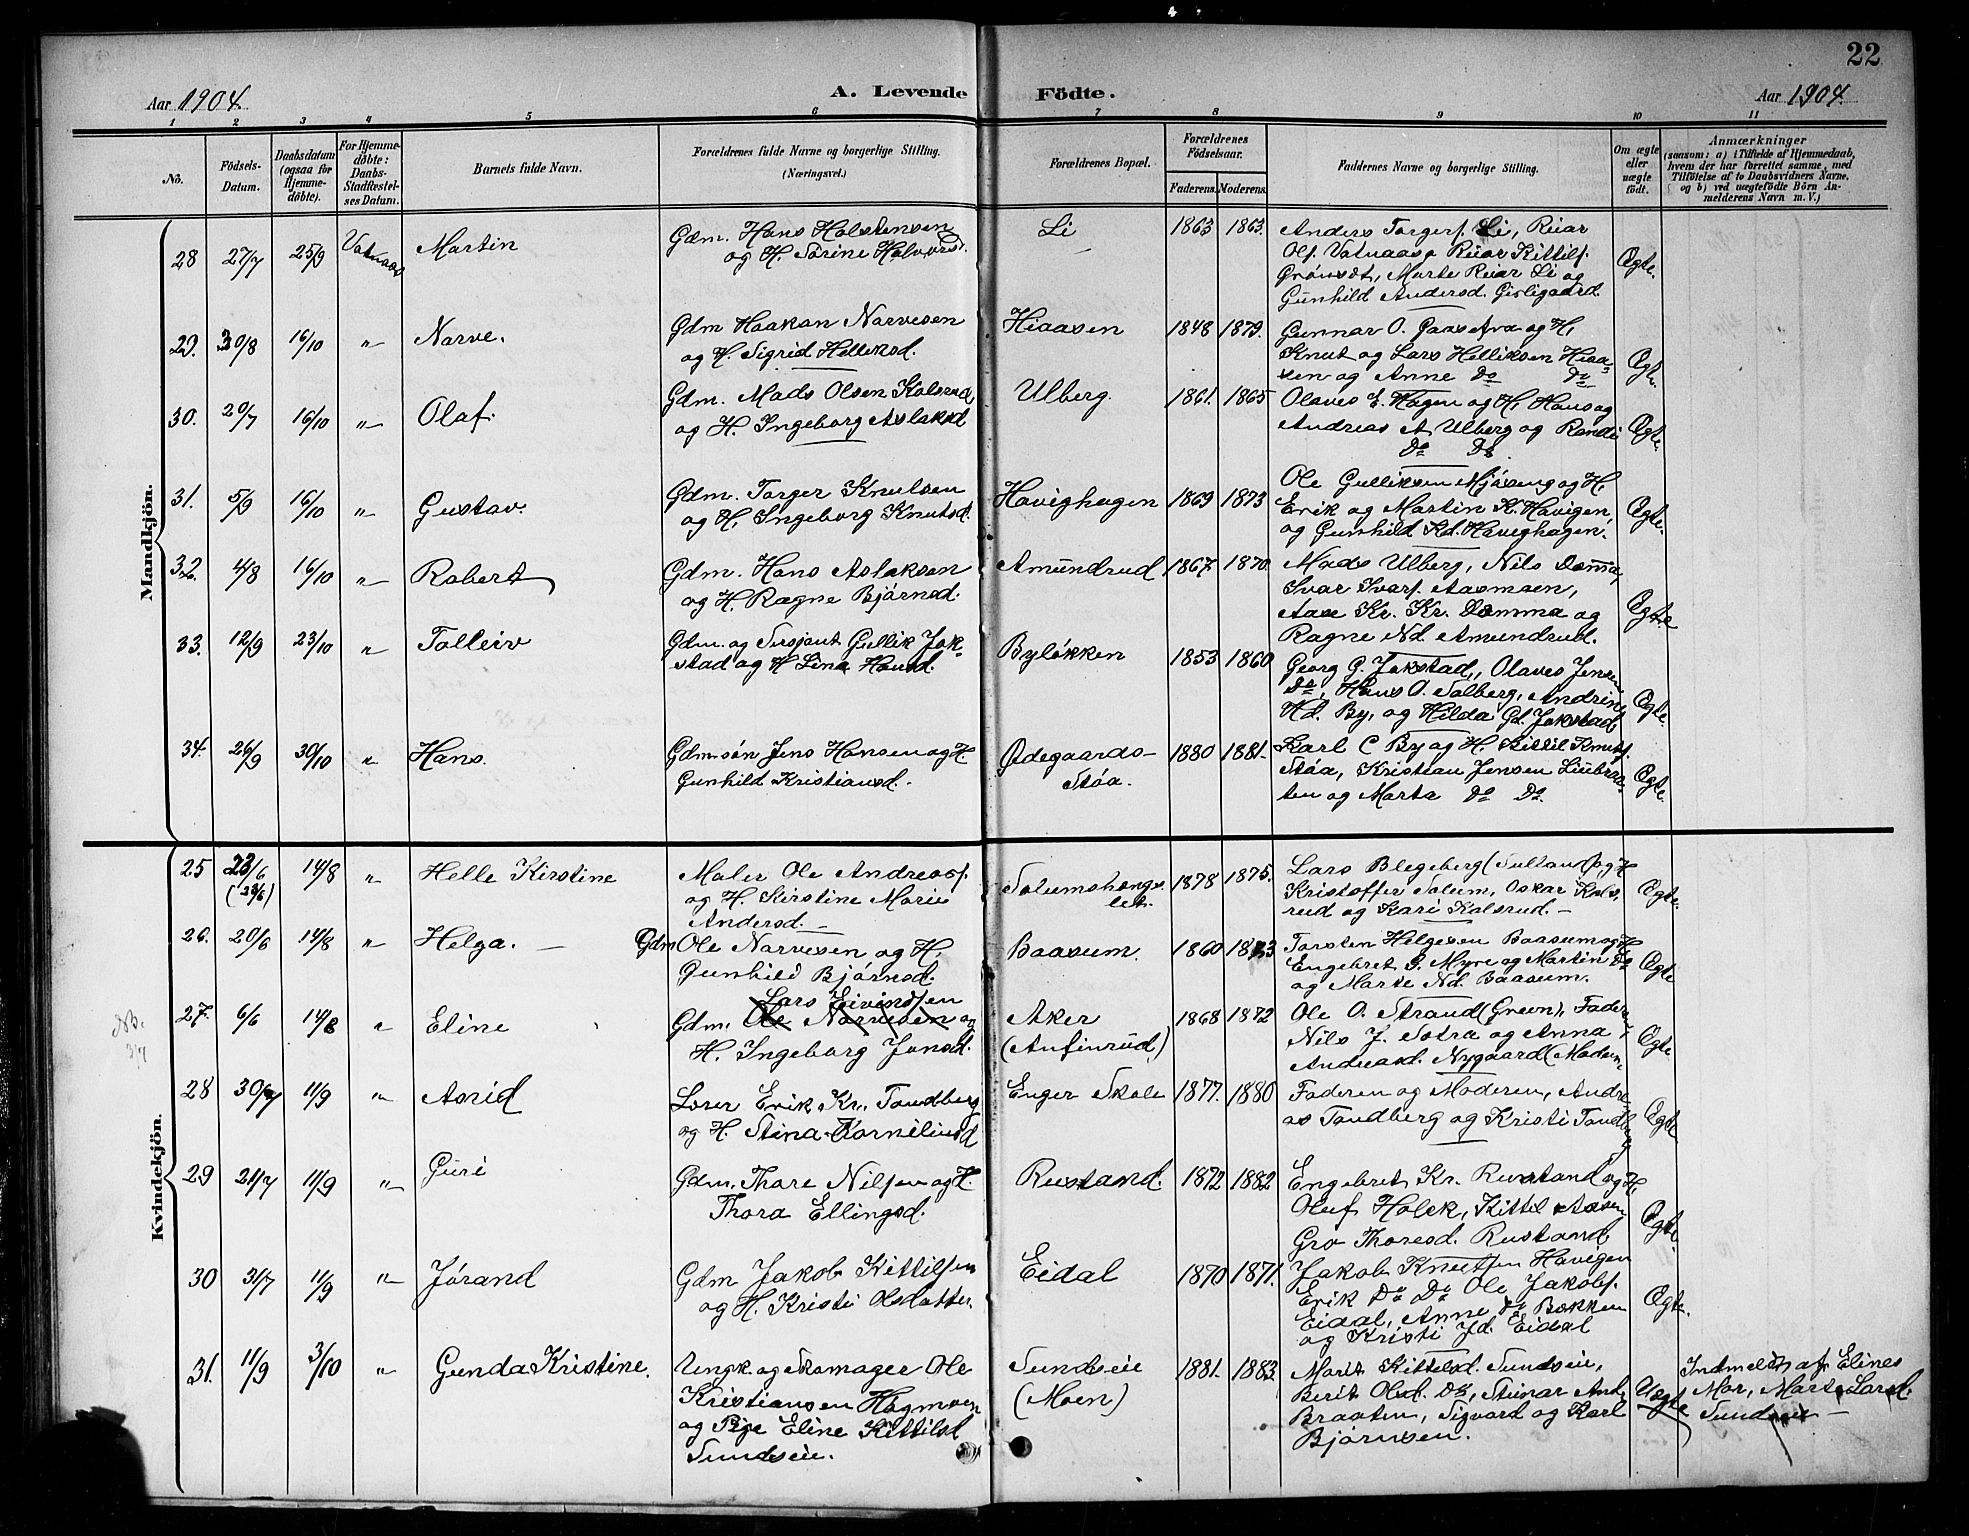 22
Aar 1904.
A. Levende Födte.
Aar 1904.
1 2 3 4 5 6 7 8 9 10 11
No.
Födsels-Datum.
Daabsdatum (ogsaa for Hjemme-döbte).
For Hjemme-döbte: Daabs-Stadfæstel-ses Datum.
Barnets fulde Navn.
Forældrenes fulde Navne og borgerlige Stilling.
(Næringsvei.)
Forældrenes Bopæl.
Forældrenes Födselsaar.
Faderens. Moderens.
Faddernes Navne og borgerlige Stilling.
Om ægte eller uægte födt.
Anmærkninger
(saasom: a) i Tilfælde af Hjemmedaab,
hvem der har forrettet samme, med
Tilföielse af to Daabsvidners Navne,
og b) ved uægtefödte Börn An-
melderens Navn m. V.)
Mandkjön.
28 27/7 25/9 Vatnaas Martin
Gdm. Hans Holstensen
og H. Sörine Halvorsd.
Li 1863 1863.
Anders Torgersf. Li, Reiar
Ols. Vatnaas, Reiar Kittilsf.
Grönset, Marte Reiar Li og
Gunhild Andersd. Gisligaard.
Ægte.
29. 30/8 16/10 " Narve.
Gdm Haakan Narvesen
og H. Sigrid Helleksd.
Hiaasen 1848 1879.
Gunnar O. og H,
Knut og Lars Helliksen Hiaa-
sen og Anne Do Do
Ægte.
30. 20/7 16/10 " Olaf.
Gdm. Mads Olsen Kalsrud
og H. Ingeborg Aslaksd
Ulberg. 1861. 1865
Olaves E. Hagen og H, Hans og
Andreas A Ulberg og Randi
Do Do
Ægte.
31. 5/9 16/10 " Gustav.
Gdm. Torger Knutsen
og H, Ingeborg Knutsd.
Havighagen 1869 1873
Ole Gulliksen Mjöseng og H,
Erik og Martin K. Havigen,
og Gunhild Kd. Havighagen.
Ægte.
32. 4/8 16/10 " Robert
Gdm. Hans Aslaksen
og H. Ragne Björnsd.
Amundrud 1867. 1870.
Mads Ulberg, Nils Damma,
Ivar Ivarsf. Aasmoen,
Aase Kr. Kr. Damma og
Ragne Nd. Amundrud.
Ægte
33. 12/9 23/10 " Tolleiv
Gdm. og Sersjant Gullik Jok-
stad og H Lina Hansd.
Bylökken 1853 1860
Georg G. Jokstad, Olaves Jensen
Do, Hans O. Solberg, Andrine
Hd. By, og Hilda Gd. Jokstad
Ægte.
34. 26/9 30/10 " Hans.
Gdm.sön Jens Hansen og H
Gunhild Kristiansd.
Ödegaards-
Stöa.
1880 1881.
Karl C By og H. Kittil Knutsf.
Stöa, Kristian Jensen Liubraa-
ten og Marta Do Do.
Ægte.
Kvindekjön.
25 23/6 (23/6) 14/8 " Helle Kirstine
Maler Ole Andreasf.
og H. Kirstine Marie
Andersd.
Solumshengs-
let.
1878 1875.
Lars Blegeberg (Sultan) og H
Kristoffer Solum, Oskar Kals-
rud og Kari Kalsrud. –
Ægte.
26. 20/6 14/8 " Helga. –
Gdm Ole Narvesen og H,
Gunhild Björnsd.
Baasum. 1860 1873
Torsten Helgesen Baasum og H
Engebret G. Myre og Martin Do
og Marie Nd. Baasum.
Ægte
NB.
27. 6/6 14/8 " Eline
Lars Eivindsen
Gdm. Ole Narvesen og
H. Ingeborg Jonsd.
Aker
(Anfinrud)
1868 1872
Ole O. Strand (Green), Fader,
Nils J. Sotra og Anna
Andreasd. Nygaard (Moder.
Ægte
28 30/7 11/9 " Astrid
Lærer Erik Kr. Tandberg
og H. Stina Korneliusd
Enger Skole 1877. 1880
Faderen og Moderen, Andre-
as Tandberg og Kristi Tandberg
Ægte
29 21/7 11/9 " Guri
Gdm. Thore Nilsen og H.
Thora Ellingsd.
Rustand. 1872 1882
Engebret Kr. Rustand og H,
Oluf Holck, Kittil Aasen
Gro Thoresd. Rustand
Ægte.
30 31/7 11/9 " Jörand
Gdm Jakob Kittilsen
og H. Kristi Olsdatter.
Eidal 1870 1871.
Jakob Knutsen Havigen
Erik Do Do Ole Jakobsf.
Eidal, Anne Do Bakken
og Kristi Jd. Eidal
Ægte.
31. 11/9 3/10 " Gunda Kristine.
Ungk. og Skomager Ole
Kristiansen Hagmoen
og Pige Eline Kittilsd
Sundseie.
Sundseie
(Moen)
1881. 1883.
Marit Kittelsd. Sundseie,
Berit Olsd. Do, Steinar And.
Braaten, Sigvard og Karl
Björnsen.
Uægte
Indmeldt af Elines
Mor, Marte Larsd.
Sundseie –